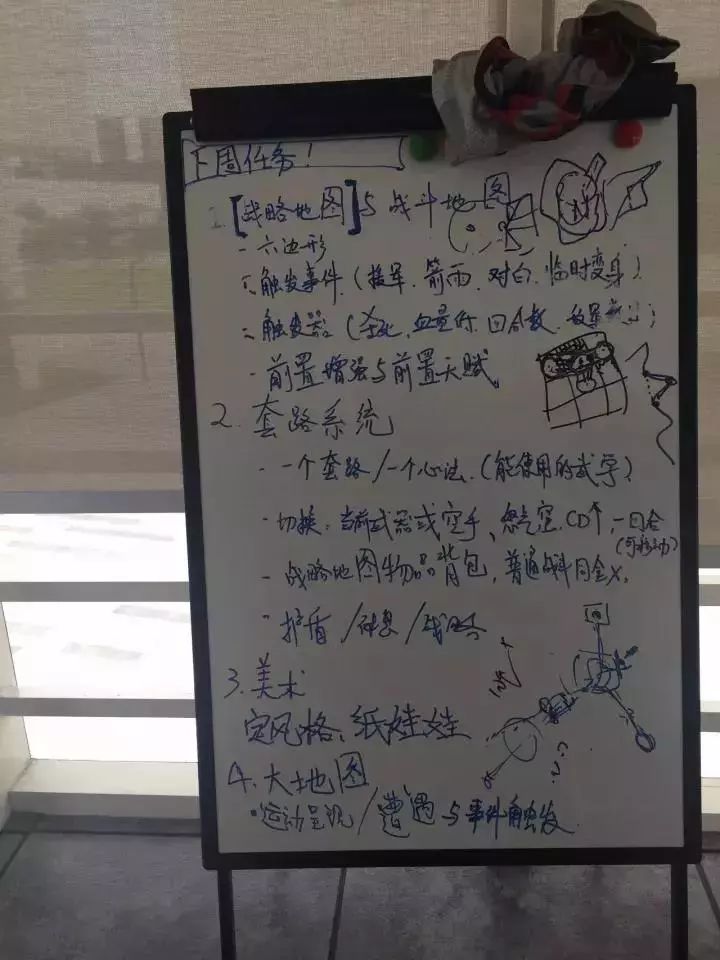 下周任务!
1.[战略地图]与战斗地图
- 六边形
触发事件(援军、箭雨、对白、临时变身)
触发器(杀死、血量低、回合数、
- 前置增强与前置天赋
2. 套路系统
- 一个套路/一个心法.(能使用的武学)
- 切换:当前武器或空手、怒气空.CD↑,一回合
(可移动)
- 战略地图物品背包,普通战斗同全X.
- 护盾/
3. 美术
定风格:纸娃娃
4. 大地图
·运动呈现/遭遇与事件触发